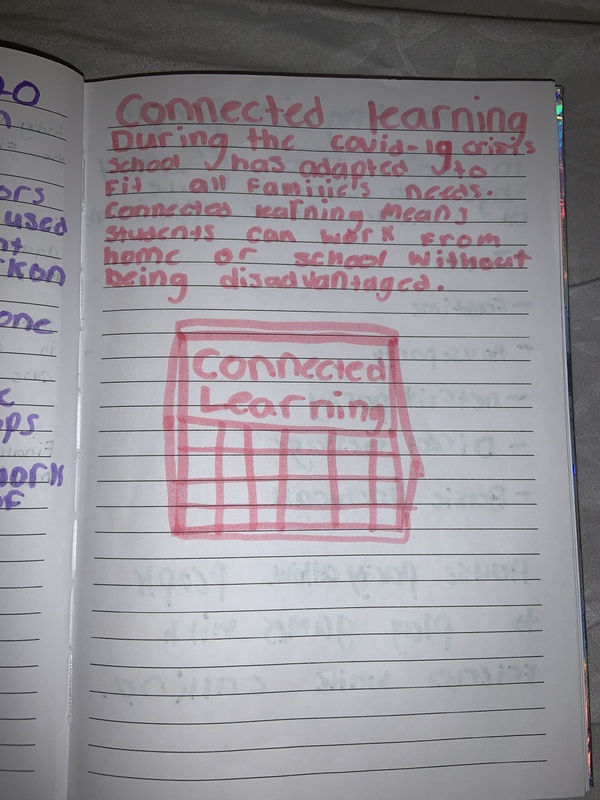 Connected learning
During the covid-19 crisis
school has adapted to
Fit all Familie's needs.
Connected learning means
students can work From
home or school without
being disadvantaged.
Connected
Learning
ors
used
one
ops
work
oF